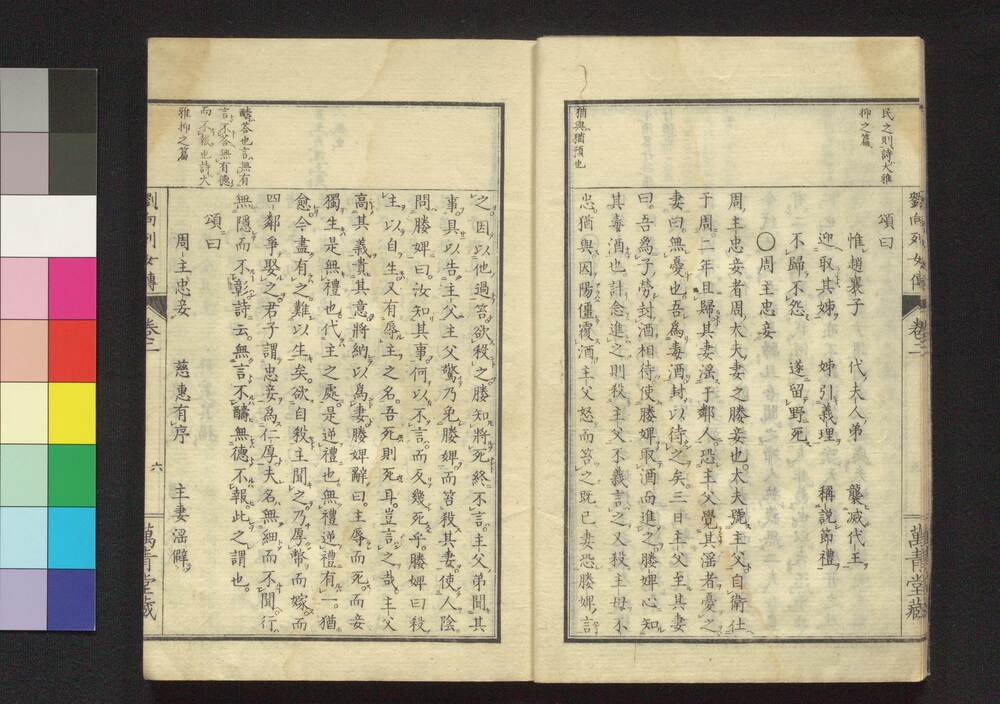 民之則詩大雅
抑之篇
猶與猶預也
劉向列女傳
卷二
萬青堂藏
頌曰
惟趙襄子 代夫人弟 襲滅代王
迎取其姊 姊引義理 稱説節禮
不歸不怨 遂留野死
〇周主忠妾
周主忠妾者周大夫妻之媵妾也大夫號主父自衛仕
于周二年且歸其妻淫于鄰人恐主父覺其淫者憂之
妻曰無憂也吾爲毒酒封以待之矣三日主父至其妻
曰吾爲子勞封酒相待使媵婢取酒而進之媵婢心知
其毒酒也計念進之則殺主父不義言之又殺主母不
忠猶與因陽僵覆酒主父怒而笞之既已妻恐媵婢言
醻荅也言無有
言不荅無有德
而不報也詩大
雅抑之篇
之因以他過笞欲殺之媵知將死終不言主父弟聞其
事具以告主父主父驚乃免媵婢而笞殺其妻使人陰
問媵婢曰汝知其事何以不言而反幾死乎媵婢曰殺
主以自生又有辱主之名吾死則死耳豈言之哉主父
高其義貴其意將納以爲妻媵婢辭曰主辱而死而妾
獨生是無禮也代主之處是逆禮也無禮逆禮有一猶
愈今盡有之難以生矣欲自殺主聞之乃厚幣而嫁而
四鄰爭娶之君子謂忠妾爲仁厚夫名無細而不聞行
無隱而不彰詩云無言不醻無德不報此之謂也
頌曰
周主忠妾 慈惠有序 主妻淫僻
劉向列女傳
卷二
六
萬青堂藏